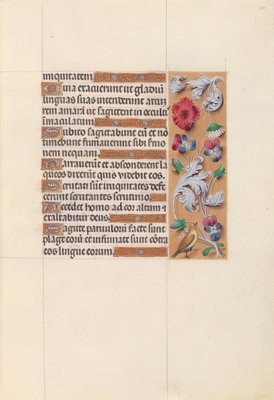 iniquitatem
Quia exacuerunt ut gladiū
linguas suas intenderunt arcū
rem amarā ut sagittent in occultis
immaculatum
Subito sagittabunt eū et no
timebunt firmaverunt sibi sermo
nem nequam
Narraverūt ut absconderent la
queos dixerūt quis videbit eos
Scrutati sūt iniquitates defe
cerunt scrutantes scrutinio
Accedet homo ad cor altum et
exaltabitur deus
Sagitte parvulorū facte sunt
plage eorū et infirmate sunt cōtra
eos lingue eorum